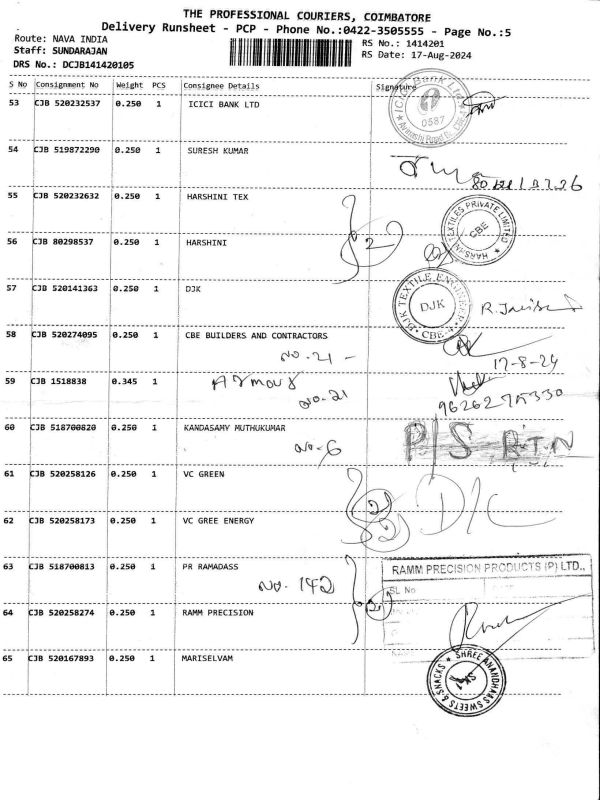 THE PROFESSIONAL COURIERS, COIMBATORE
Delivery Runsheet - PCP - Phone No.:0422-3505555 - Page No.:5
Route: NAVA INDIA
Staff: SUNDARAJAN
DRS No.: DCJB141420105
RS No.: 1414201
RS Date: 17-Aug-2024
S No Consignment No Weight PCS Consignee Details Signature
53 CJB 520232537 0.250 1 ICICI BANK LTD
ICICI Bank Ltd
0587
54 CJB 519872290 0.250 1 SURESH KUMAR
55 CJB 520232632 0.250 1 HARSHINI TEX
HARSHNI TEXTILES PRIVATE LIMITED
CBE
56 CJB 80298537 0.250 1 HARSHINI
2
57 CJB 520141363 0.250 1 DJK
DJK TEXTILE ENGINEER
DJK
CBE-4
58 CJB 520274095 0.250 1 CBE BUILDERS AND CONTRACTORS
NO. 21
17-8-24
59 CJB 1518838 0.345 1 Armour
NO. 21
60 CJB 518700820 0.250 1 KANDASAMY MUTHUKUMAR
NO. 6
P/S RTN
61 CJB 520258126 0.250 1 VC GREEN
2
D/C
62 CJB 520258173 0.250 1 VC GREE ENERGY
2
63 CJB 518700813 0.250 1 PR RAMADASS
NO. 142
RAMM PRECISION PRODUCTS (P) LTD.,
SL No
64 CJB 520258274 0.250 1 RAMM PRECISION
2
65 CJB 520167893 0.250 1 MARISELVAM
SHREE ANANDHAAS SWEETS & SNACKS